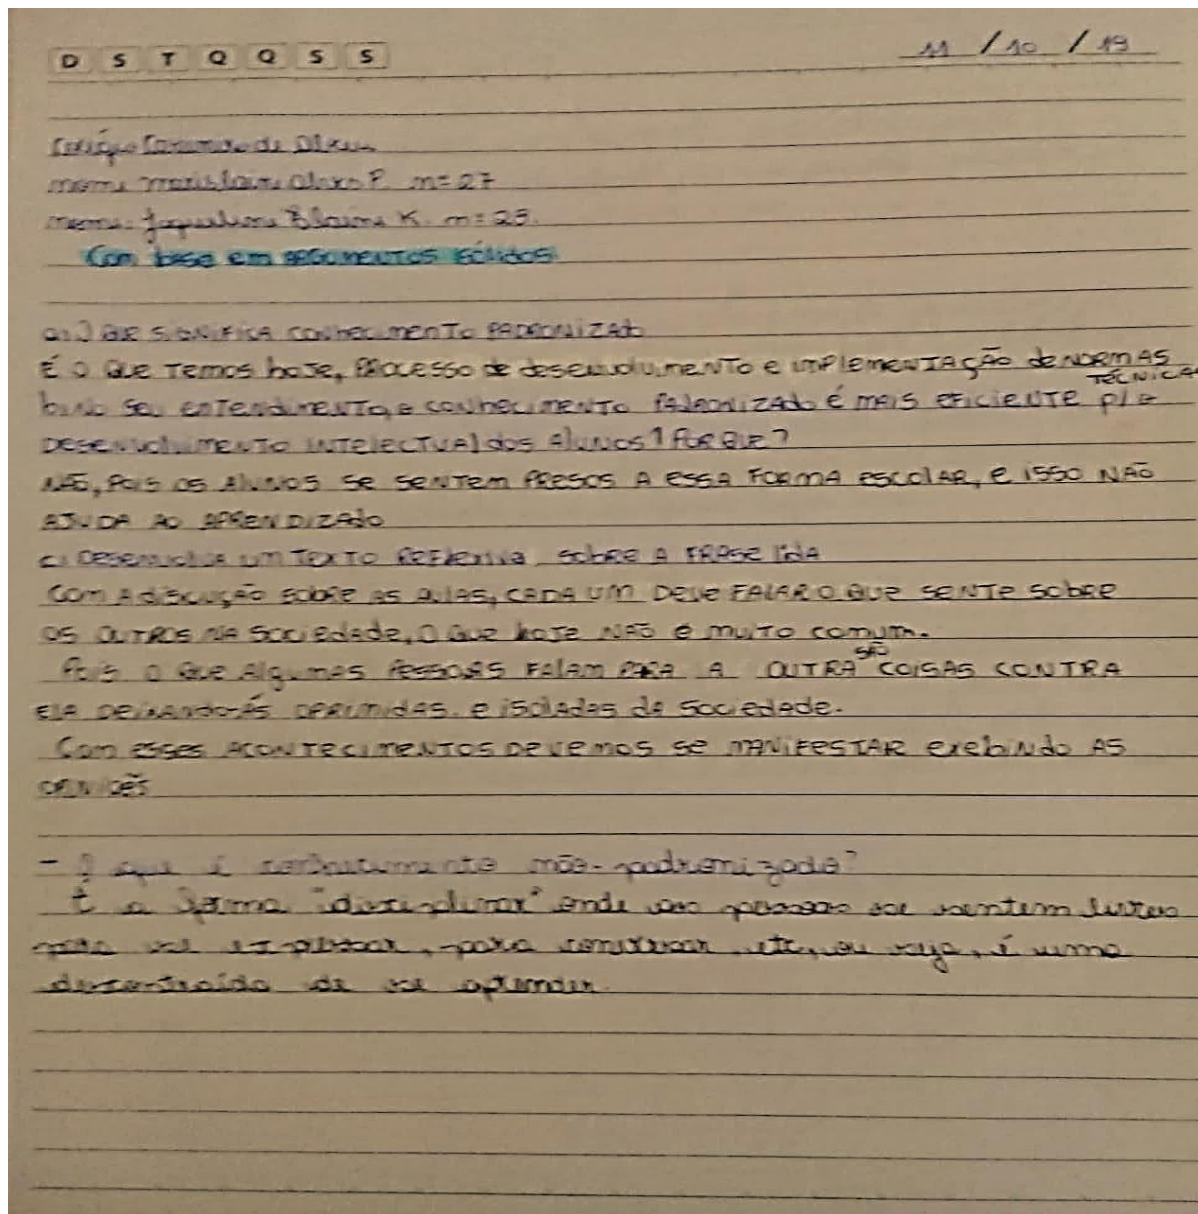 D S T Q Q S S
11 / 10 / 19
Colégio Casimiro de Abreu
nome Marislaine Alves P. n=27
nome: Jaqueline Elaine K. n=25.
Com base em argumentos sólidos
a) O QUE SIGNIFICA CONHECIMENTO PADRONIZADO
É O QUE TEMOS HOJE, PROCESSO de desenvolvimento e IMPLEMENTAÇÃO de NORMAS TÉCNICAS
b) NO SEU ENTENDIMENTO, O CONHECIMENTO PADRONIZADO É MAIS EFICIENTE P/ O
DESENVOLVIMENTO INTELECTUAL dos Alunos? POR QUE?
NÃO, POIS OS ALUNOS SE SENTEM PRESOS A ESSA FORMA ESCOLAR, E ISSO NÃO
AJUDA AO APRENDIZADO
c) DESENVOLVA UM TEXTO REFLEXIVO SOBRE A FRASE lidA
COM A DISCUÇÃO SOBRE AS AULAS, CADA UM DEVE FALAR O QUE SENTE SOBRE
OS OUTROS NA SOCIEDADE, O QUE HOJE NÃO É MUITO COMUM.
POIS O QUE ALGUMAS PESSOAS FALAM PARA A OUTRA SÃO COISAS CONTRA
ELA DEIXANDO-ÁS OPRIMIDAS e isoladas da SOCIEDADE.
COM ESSES ACONTECIMENTOS DEVEMOS SE MANIFESTAR EXEBINDO AS
- O que é conhecimento não-padronizado?
É a forma "disciplinar" onde as pessoas se sentem livres
para se expressar, para conversar, etc, ou seja, é uma
descontraída de se aprender.